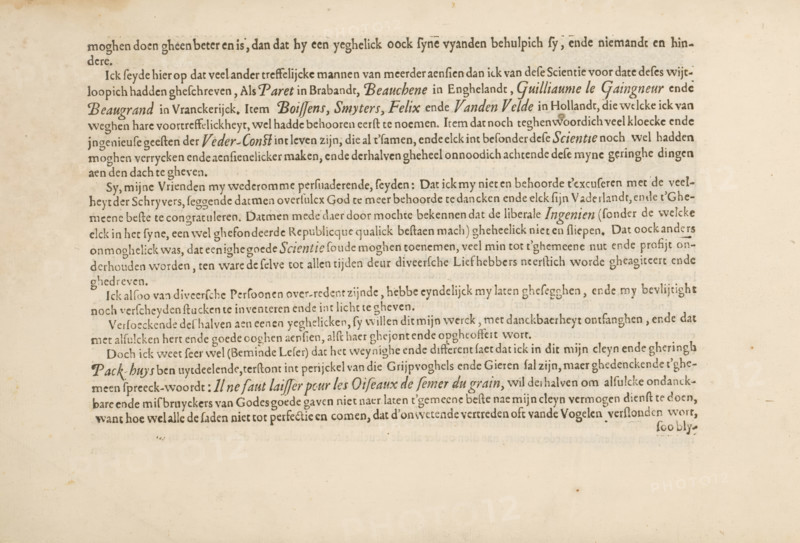 moghen doen gheen beter en is, dan dat hy een yeghelick oock ſyne vyanden behulpich ſy, ende niemandt en hin-
dere.
Ick ſeyde hier op dat veel ander treffelijcke mannen van meerder aenſien dan ick van deſe Scientie voor date deſes wijt-
loopich hadden gheſchreven, Als Paret in Brabandt, Beauchene in Enghelandt, Guilliaume le Gaingneur ende
Beaugrand in Vranckerijck. Item Boiſſens, Smyters, Felix ende Vanden Velde in Hollandt, die welcke ick van
weghen hare voortreffelickheyt, wel hadde behooren eerſt te noemen. Item dat noch teghenwoordich veel kloecke ende
jngenieuſe geeſten der Veder-Conſt int leven zijn, die al t'ſamen, ende elck int beſonder deſe Scientie noch wel hadden
moghen verrycken ende aenſienelicker maken, ende derhalven gheheel onnoodich achtende deſe myne geringhe dingen
aen den dach te gheven.
Sy, mijne Vrienden my wederomme perſuaderende, ſeyden: Dat ick my niet en behoorde t'excuſeren met de veel-
heyt der Schryvers, ſeggende datmen overſulcx God te meer behoorde te dancken ende elck ſijn Vaderlandt, ende t'Ghe-
meene beſte te congratuleren. Datmen mede daer door mochte bekennen dat de liberale Ingenien (ſonder de welcke
elck in het ſyne, een wel ghefondeerde Republicque qualick beſtaen mach) gheheelick niet en ſliepen. Dat oock anders
onmoghelick was, dat eenighe goede Scientie ſoude moghen toenemen, veel min tot t'ghemeene nut ende profijt on-
derhouden worden, ten ware de ſelve tot allen tijden deur diveerſche Liefhebbers neerſtich worde gheagiteert ende
ghedreven.
Ick alſoo van diveerſche Perſoonen over-redent zijnde, hebbe eyndelijck my laten gheſegghen, ende my bevlijtight
noch verſcheyden ſtucken te inventeren ende int licht te gheven.
Verſoeckende deſhalven aen eenen yeghelicken, ſy willen dit mijn werck, met danckbaerheyt ontfanghen, ende dat
met alſulcken hert ende goede ooghen aenſien, alſt haer ghejont ende opgheoffert wort.
Doch ick weet ſeer wel (Beminde Leſer) dat het weynighe ende different ſaet dat ick in dit mijn cleyn ende gheringh
Pack-huys ben uytdeelende, terſtont int perijckel van die Grijpvoghels ende Gieren ſal zijn, maer ghedenckende t'ghe-
meen ſpreeck-woordt: Il ne faut laiſſer pour les Oiſeaux de ſemer du grain, wil derhalven om alſulcke ondanck-
bare ende miſbruyckers van Godes goede gaven niet naer laten t'gemeene beſte nae mijn cleyn vermogen dienſt te doen,
want hoe wel alle de ſaden niet tot perfectie en comen, dat d'onwetende vertreden oft vande Vogelen verſlonden wort,
ſoo bly-